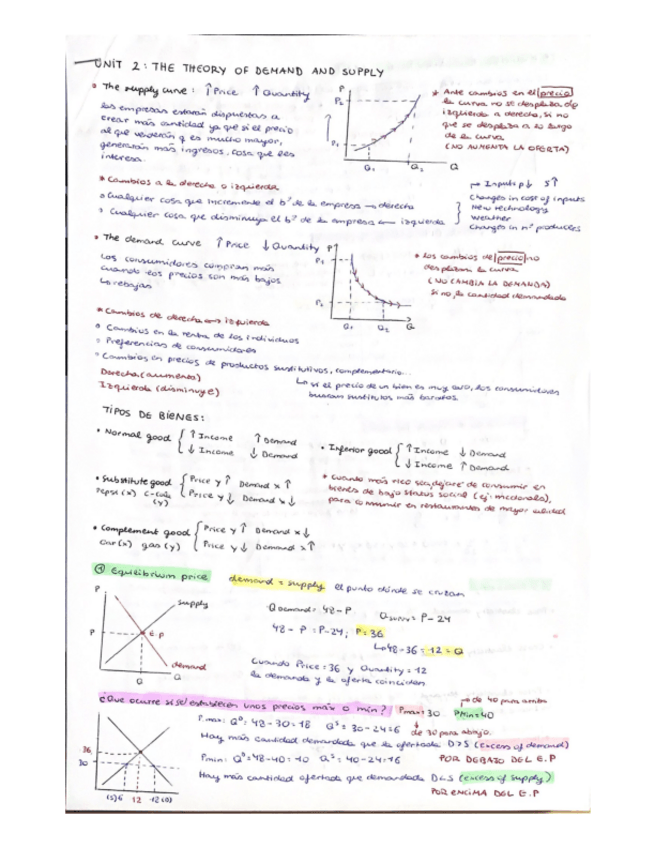 UNIT 2: THE THEORY OF DEMAND AND SUPPLY
The supply curve: ↑ Price ↑ Quantity
Las empresas estarán dispuestas a
crear más cantidad ya que si el precio
al que venderán q es mucho mayor,
generarán más ingresos, cosa que les
interesa.
P
P2
P1
Q1
Q2
Q
* Ante cambios en el precio
la curva no se desplaza de
izquierda a derecha, si no
que se desplaza a lo largo
de la curva
(NO AUMENTA LA OFERTA)
* Cambios a la derecha o izquierda
Cualquier cosa que incremente el bº de la empresa → derecha
Cualquier cosa que disminuya el bº de la empresa → izquierda
→ Inputs p↓ S↑
Changes in cost of inputs
New technology
Weather
Changes in nº producers
The demand curve ↑ Price ↓ Quantity
Los consumidores compran más
cuando los precios son más bajos
↳ rebajas
P
P1
P2
Q1
Q2
Q
* Los cambios del precio no
desplazan la curva
(NO CAMBIA LA DEMANDA)
si no, la cantidad demandada
* Cambios de derecha ↔ izquierda
Cambios en la renta de los individuos
Preferencias de consumidores
Cambios en precios de productos sustitutivos, complementario...
Derecha (aumenta)
Izquierda (disminuye)
↳ si el precio de un bien es muy caro, los consumidores
buscan sustitutos más baratos.
TIPOS DE BIENES:
• Normal good { ↑ Income ↑ Demand
↓ Income ↓ Demand
• Inferior good { ↑ Income ↓ Demand
↓ Income ↑ Demand
• Substitute good { Price y ↑ Demand x ↑
Pepsi (x) C-cola (y) Price y ↓ Demand x ↓
* Cuando más rico sea, dejaré de consumir en
bienes de bajo status social (ej: mcdonalds),
para consumir en restaurantes de mayor calidad
• Complement good { Price y ↑ Demand x ↓
Car (x) gas (y) Price y ↓ Demand x ↑
Equilibrium price demand = supply el punto dónde se cruzan
P
supply
P
E.P
demand
Q
Q
Q demand = 48 - P
Q supply = P - 24
48 - P = P - 24; P = 36
↳ 48 - 36 = 12 = Q
Cuando Price = 36 y Quantity = 12
la demanda y la oferta coinciden
¿Que ocurre si se establecen unos precios máx o mín? Pmax = 30 Pmin = 40
→ de 40 para arriba
↓ de 30 para abajo.
P. max: Qᴰ = 48 - 30 = 18 Qˢ = 30 - 24 = 6
Hay más cantidad demandada que la ofertada D > S (Excess of demand)
POR DEBAJO DEL E.P
Pmin: Qᴰ = 48 - 40 = 10 Qˢ = 40 - 24 = 16
Hay más cantidad ofertada que demandada D < S (excess of supply)
POR ENCIMA DEL E.P
36
30
(S) 6 12